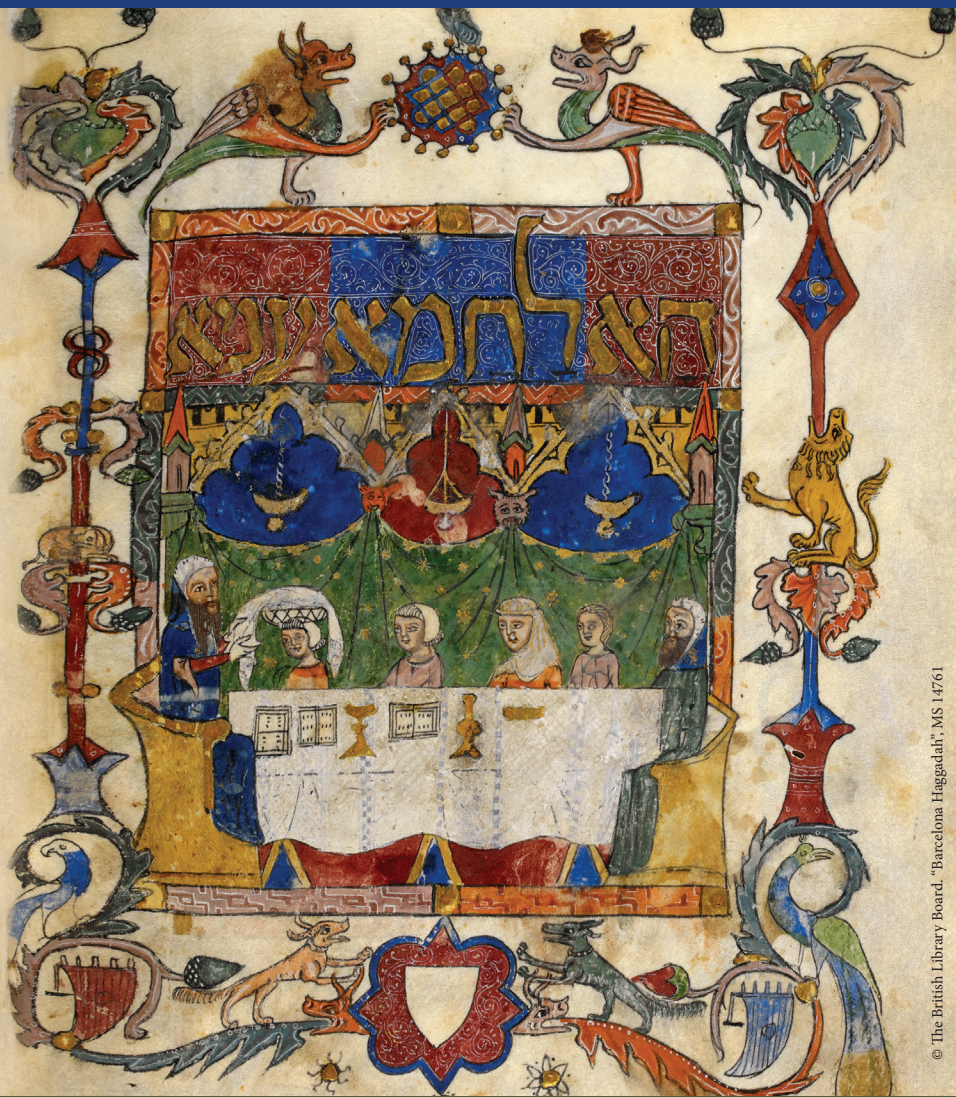 הא לחמא עניא
© The British Library Board. “Barcelona Haggadah”, MS 14761